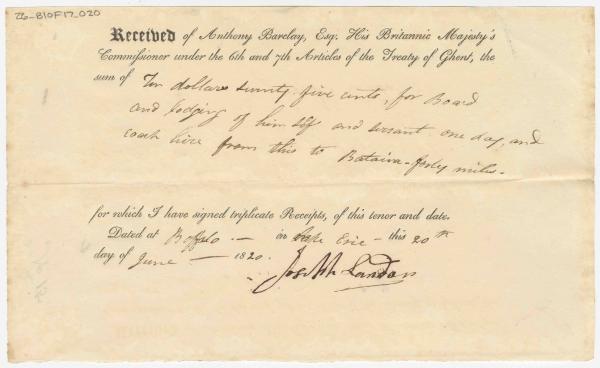 26-B10F17-020
Received of Anthony Barclay, Esq. His Britannic Majesty's
Commissioner under the 6th and 7th Articles of the Treaty of Ghent, the
sum of Ten dollars seventy five cents, for Board
and lodging of him self and servant one day, and
coach hire from this to Bataiva - forty miles -
for which I have signed triplicate Receipts, of this tenor and date.
Dated at Buffalo — in Lake Erie - this 20th
day of June — 1820.
Joseph Landon